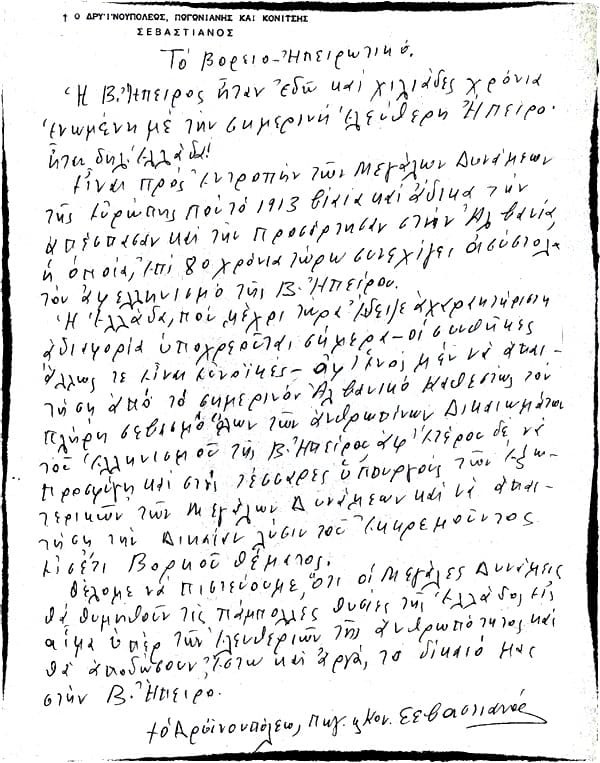 † Ο ΔΡΥΙΝΟΥΠΟΛΕΩΣ, ΠΩΓΩΝΙΑΝΗΣ ΚΑΙ ΚΟΝΙΤΣΗΣ
ΣΕΒΑΣΤΙΑΝΟΣ
Τό Βορειο-Ἠπειρωτικό.
Ἡ Β. Ἤπειρος ἦταν ἐδῶ καί χιλιάδες χρόνια
ἑνωμένη μέ τήν σημερινή ἐλεύθερη Ἤπειρο.
ἦταν δηλ. Ἑλλάδα!
Εἶναι πρός ἐντροπήν τῶν Μεγάλων Δυνάμεων
τῆς Εὐρώπης πού τό 1913 βίαια καί ἄδικα τήν
ἀπέσπασαν καί τήν προσάρτησαν στήν Ἀλβανία,
ἡ ὁποία, ἐπί 80 χρόνια τώρα συνεχίζει ἀσύστολα
τόν ἀφελληνισμό τῆς Β. Ἠπείρου.
Ἡ Ἑλλάδα, πού μέχρι τώρα ἔδειξε ἀχαρακτήριστη
ἀδιαφορία ὑποχρεοῦται σήμερα – οἱ συνθῆκες
ἄλλως τε εἶναι εὐνοϊκές – ἀφ' ἑνός μέν νά ἀπαι-
τήση ἀπό τό σημερινόν Ἀλβανικό καθεστώς τόν
πλήρη σεβασμό ὅλων τῶν ἀνθρωπίνων Δικαιωμάτων
τοῦ Ἑλληνισμοῦ τῆς Β. Ἠπείρου, ἀφ' ἑτέρου δέ νά
προσφύγη καί στούς τέσσαρες ὑπουργούς τῶν Ἐξω-
τερικῶν τῶν Μεγάλων Δυνάμεων καί νά ἀπαι-
τήση τήν Δικαίαν λύσιν τοῦ ἐκκρεμοῦντος
εἰσέτι Βορειοῦ θέματος.
Θέλομε νά πιστεύουμε, ὅτι οἱ Μεγάλες Δυνάμεις
θά θυμηθοῦν τίς πάμπολλες θυσίες τῆς Ἑλλάδος εἰς
αἷμα ὑπέρ τῶν ἐλευθεριῶν τῆς ἀνθρωπότητος καί
θά ἀποδώσουν, ἔστω καί ἀργά, τό δίκαιό μας
στήν Β. Ἤπειρο.
† ὁ Δρυϊνουπόλεως, Πωγ. & Κον. Σεβαστιανός